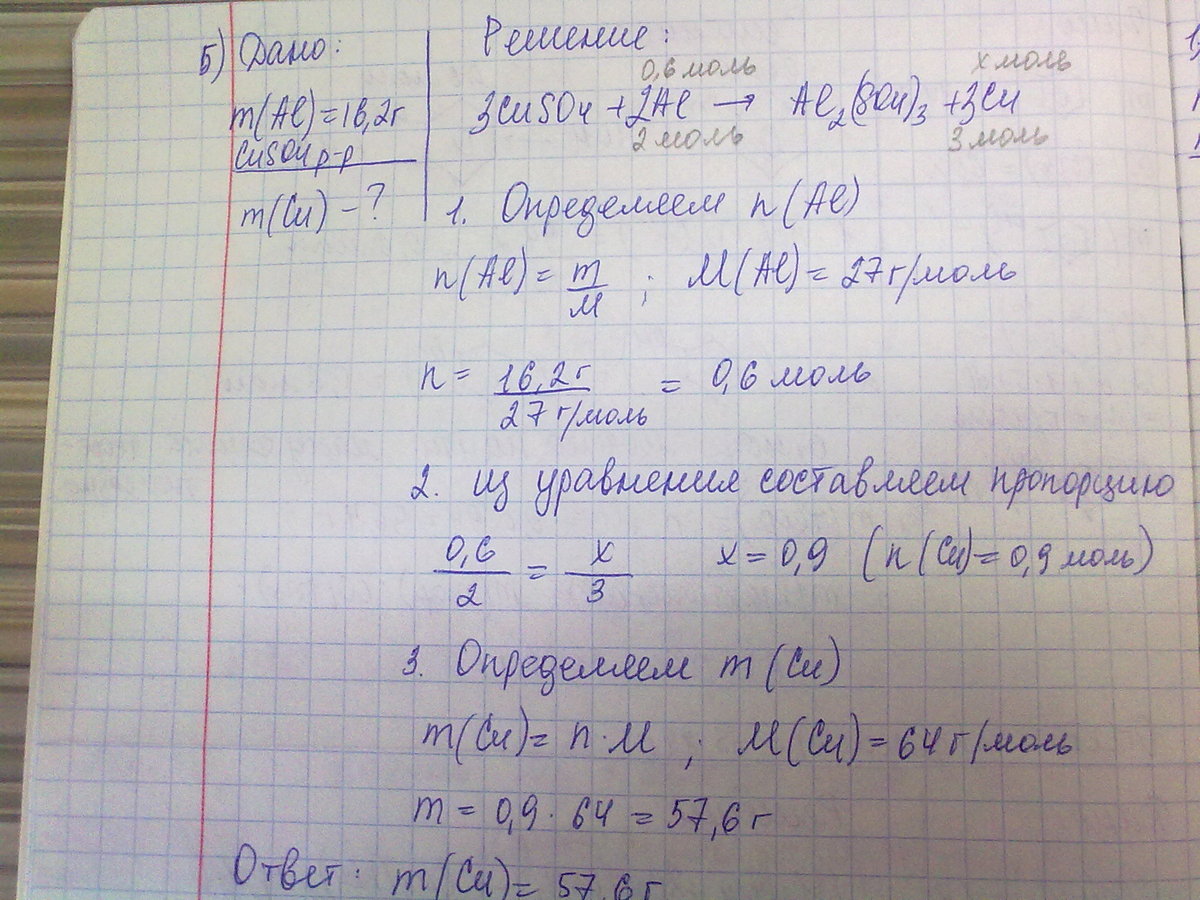 5) Дано:
m(Al)=16,2г
CuSO4 р-р
m(Cu) - ?
Решение:
0,6 моль x моль
3CuSO4 + 2Al → Al2(SO4)3 + 3Cu
2 моль 3 моль
1. Определяем n(Al)
n(Al) = m/M ; M(Al) = 27 г/моль
n = 16,2 г / 27 г/моль = 0,6 моль
2. из уравнения составляем пропорцию
0,6/2 = x/3 x = 0,9 (n(Cu)=0,9 моль)
3. Определяем m(Cu)
m(Cu) = n·M ; M(Cu) = 64 г/моль
m = 0,9 · 64 = 57,6 г
Ответ: m(Cu) = 57,6 г